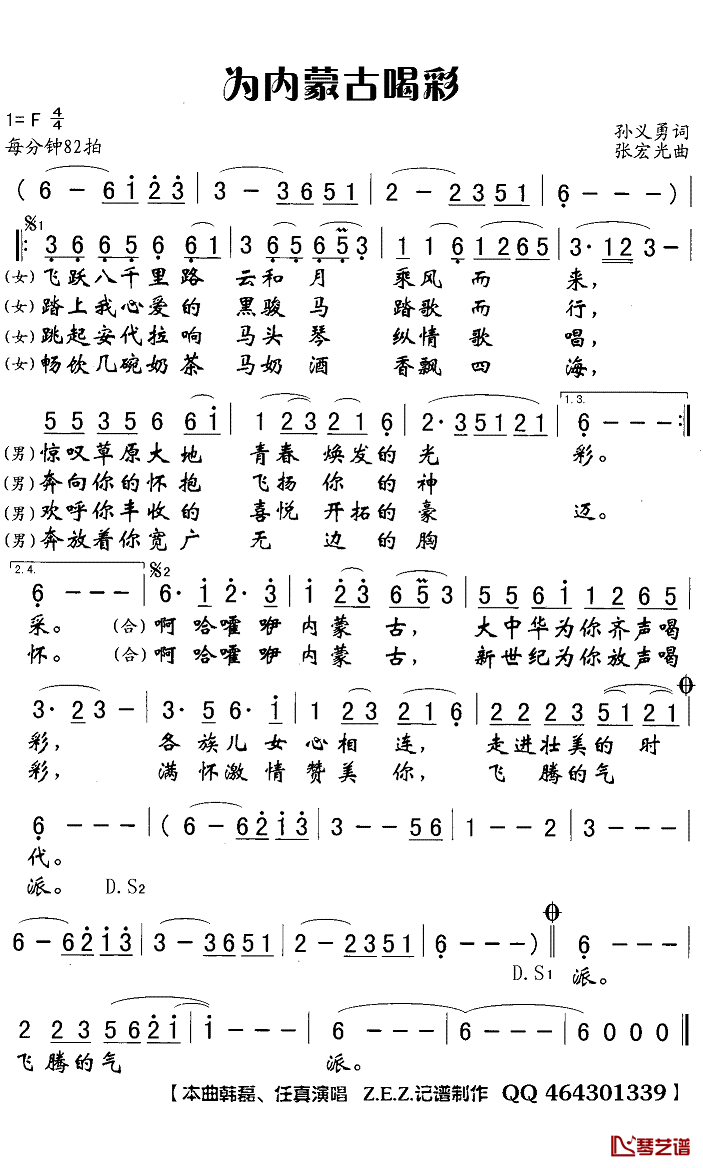 为内蒙古喝彩
1= F 4/4
孙义勇词
每分钟82拍
张宏光曲
( 6 - 6 1 2 3 | 3 - 3 6 5 1 | 2 - 2 3 5 1 | 6 - - - )
𝄋1
‖: 3 6 6 5 6 6 1 | 3 6 5 6 5 3 | 1 1 6 1 2 6 5 | 3· 1 2 3 - |
(女)飞跃八千里路 云和月 乘风而来,
(女)踏上我心爱的 黑骏马 踏歌而行,
(女)跳起安代拉响 马头琴 纵情歌唱,
(女)畅饮几碗奶茶 马奶酒 香飘四海,
1.3.
5 5 3 5 6 6 1 | 1 2 3 2 1 6 | 2· 3 5 1 2 1 | 6 - - - :‖
(男)惊叹草原大地 青春焕发的光 彩。
(男)奔向你的怀抱 飞扬你的神
(男)欢呼你丰收的 喜悦开拓的豪 迈。
(男)奔放着你宽广 无边的胸
2.4. 𝄋2
6 - - - | 6· 1 2· 3 | 1 2 3 6 5 3 | 5 5 6 1 1 2 6 5 |
采。 (合)啊哈嚯咿内蒙古, 大中华为你齐声喝
怀。 (合)啊哈嚯咿内蒙古, 新世纪为你放声喝
3· 2 3 - | 3· 5 6· 1 | 1 2 3 2 2 1 6 | 2 2 2 3 5 1 2 1 |
彩, 各族儿女心相连, 走进壮美的时
彩, 满怀激情赞美你, 飞腾的气
6 - - - | ( 6 - 6 2 1 3 | 3 - - 5 6 | 1 - - 2 | 3 - - - |
代。
派。 D.S2
6 - 6 2 1 3 | 3 - 3 6 5 1 | 2 - 2 3 5 1 | 6 - - - ) ‖ 6 - - - |
D.S1 派。
2 2 3 5 6 2 1 | 1 - - - | 6 - - - | 6 - - - | 6 0 0 0 ‖
飞腾的气 派。
【本曲韩磊、任真演唱 Z.E.Z.记谱制作 QQ 464301339】
琴艺谱